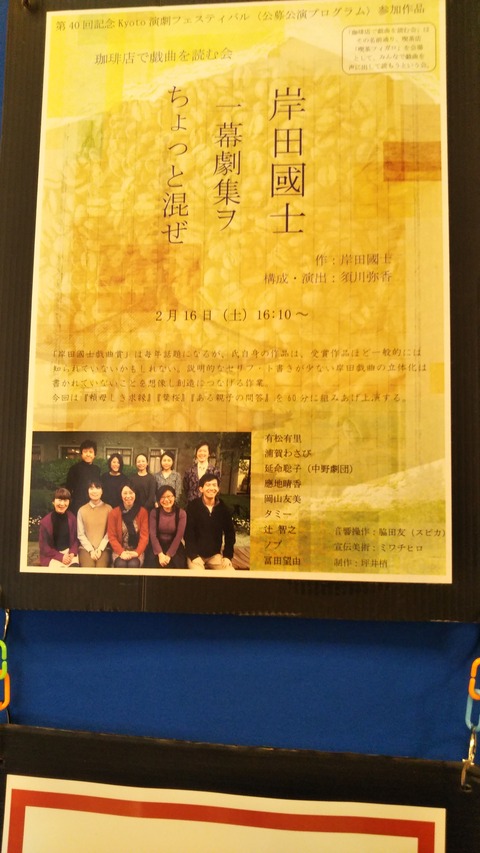 第40回記念Kyoto演劇フェスティバル〈公募公演プログラム〉参加作品
珈琲店で戯曲を読む会
「珈琲店で戯曲を読む会」は
その名前通り、喫茶店
「喫茶フィガロ」を会場
として、みんなで戯曲を
声に出して読もうという会。
岸田國士
一幕劇集ヲ
ちょっと混ぜ
作:岸田國士
構成・演出:須川弥香
2月16日(土)16:10~
「岸田國士戯曲賞」は毎年話題になるが、氏自身の作品は、受賞作品ほど一般的には
知られていないかもしれない。説明的なセリフ・ト書きが少ない岸田戯曲の立体化は
書かれていないことを想像し創造につなげる作業。
今回は『頼母しき求縁』『葉桜』『ある親子の問答』を60分に組みあげ上演する。
有松有里
浦賀わさび
延命聡子(中野劇団)
應地晴香
岡山友美
タミー
辻 智之
ノブ
冨田望由
音響操作:脇田友(スピカ)
宣伝美術:ミワチヒロ
制作:坪井梢